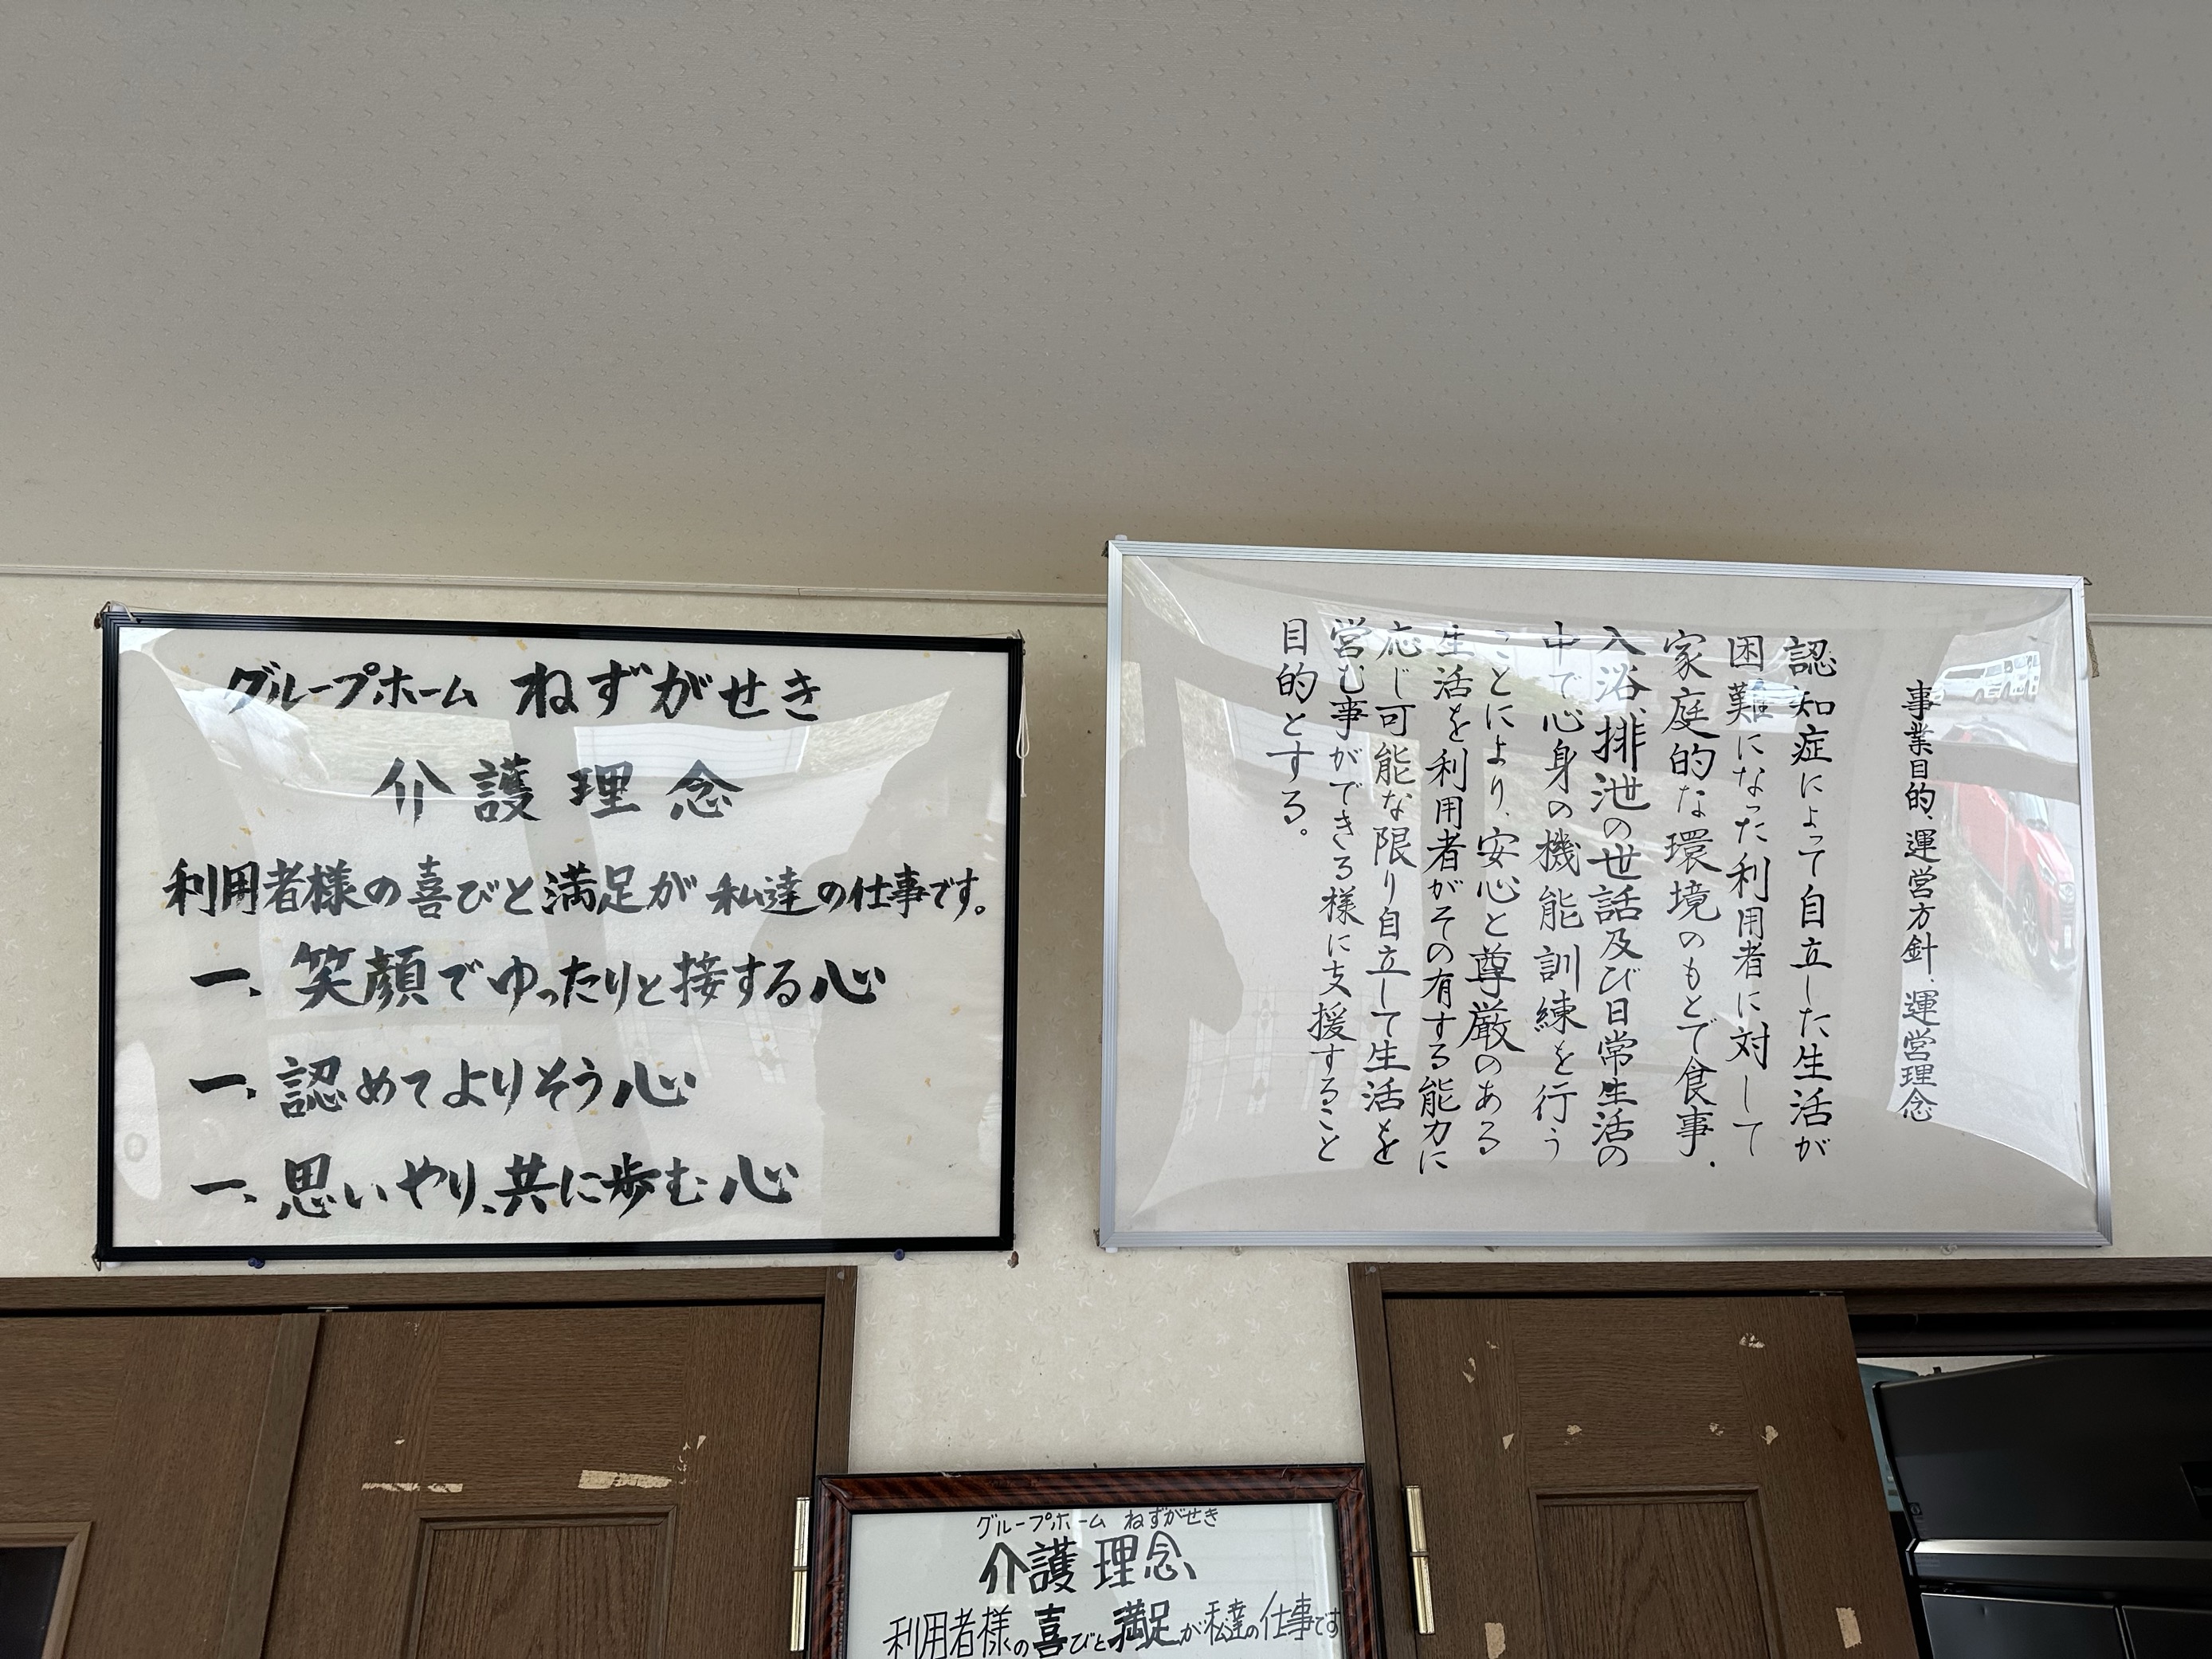 グループホーム ねずがせき
介護理念
利用者様の喜びと満足が私達の仕事です。
一、笑顔でゆったりと接する心
一、認めてよりそう心
一、思いやり、共に歩む心
事業目的、運営方針、運営理念
認知症によって自立した生活が
困難になった利用者に対して
家庭的な環境のもとで食事、
入浴、排泄の世話及び日常生活の
中で心身の機能訓練を行う
ことにより、安心と尊厳のある
生活を利用者がその有する能力に
応じ可能な限り自立して生活を
営む事ができる様に支援すること
目的とする。
グループホーム ねずがせき
介護理念
利用者様の喜びと満足が私達の仕事です